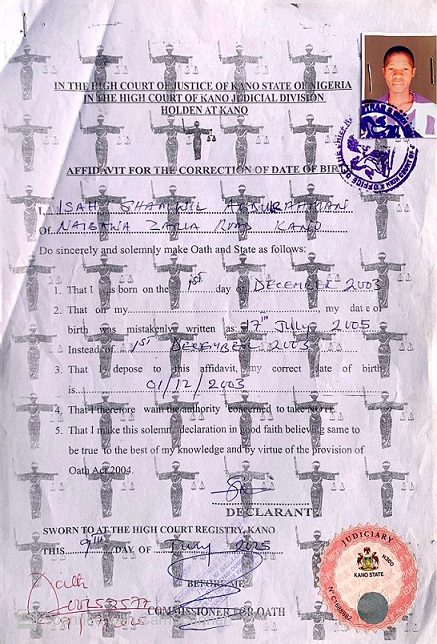 IN THE HIGH COURT OF JUSTICE OF KANO STATE OF NIGERIA
IN THE HIGH COURT OF KANO JUDICIAL DIVISION
HOLDEN AT KANO
AFFIDAVIT FOR THE CORRECTION OF DATE OF BIRTH
I, ISAH SHAMWIL ABDURAHMAN
Of NAIBAWA ZARIA ROAD KANO
Do sincerely and solemnly make Oath and State as follows:
1. That I was born on the 1st day of DECEMBER 2003
2. That on my my date of
birth was mistakenly written as 17th July 2005
Instead of 1st DECEMBER 2003
3. That I depose to this affidavit, my correct date of birth
is 01/12/2003
4. That I therefore want the authority concerned to take NOTE
5. That I make this solemn declaration in good faith believing same to
be true to the best of my knowledge and by virtue of the provision of
Oath Act 2004.
DECLARANT
SWORN TO AT THE HIGH COURT REGISTRY, KANO
THIS 9th DAY OF July 2025
BEFORE ME
COMMISSIONER FOR OATH
JUDICIARY
KANO STATE